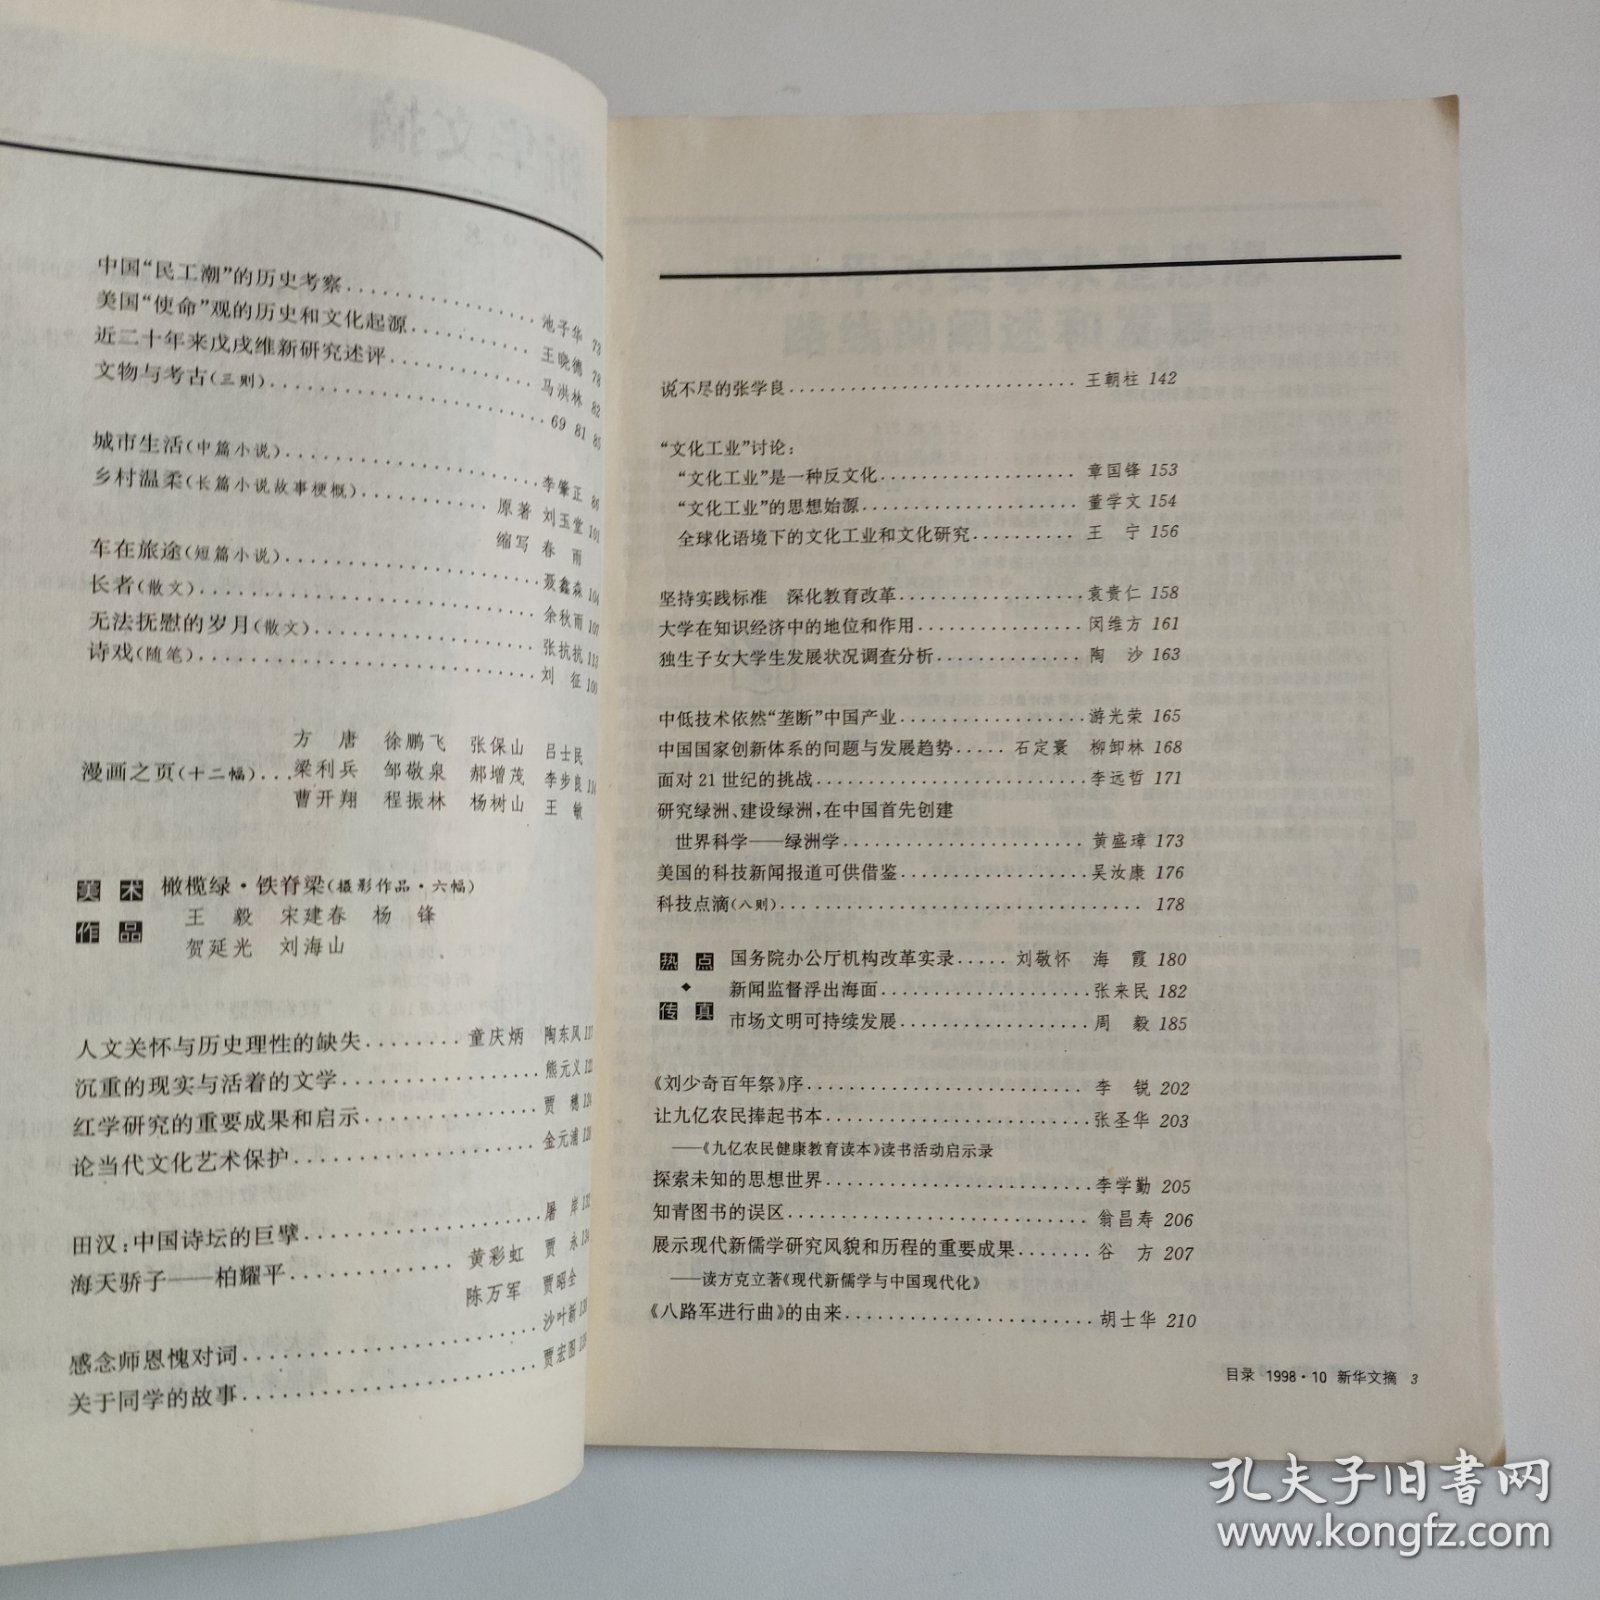 中国“民工潮”的历史考察 池子华 73
美国“使命”观的历史和文化起源 王晓德 78
近二十年来戊戌维新研究述评 马洪林 82
文物与考古(三则) 69 81 85
城市生活(中篇小说) 李肇正 86
乡村温柔(长篇小说故事梗概) 原著 刘玉堂 101
缩写 春 雨
车在旅途(短篇小说) 聂鑫森 104
长者(散文) 余秋雨 107
无法抚慰的岁月(散文) 张抗抗 113
诗戏(随笔) 刘 征 100
方 唐 徐鹏飞 张保山 吕士民
漫画之页(十二幅) 梁利兵 邹敬泉 郝增茂 李步良
曹开翔 程振林 杨树山 王 敏
美术作品
橄榄绿·铁脊梁(摄影作品·六幅)
王 毅 宋建春 杨 锋
贺延光 刘海山
人文关怀与历史理性的缺失 童庆炳 陶东风
沉重的现实与活着的文学 熊元义
红学研究的重要成果和启示 贾 穗
论当代文化艺术保护 金元浦
田汉:中国诗坛的巨擘 屠 岸
海天骄子——柏耀平 黄彩虹 贾 永
陈万军 贾昭全
感念师恩愧对词 沙叶新
关于同学的故事 贾宏图
说不尽的张学良 王朝柱 142
“文化工业”讨论:
“文化工业”是一种反文化 章国锋 153
“文化工业”的思想始源 董学文 154
全球化语境下的文化工业和文化研究 王 宁 156
坚持实践标准 深化教育改革 袁贵仁 158
大学在知识经济中的地位和作用 闵维方 161
独生子女大学生发展状况调查分析 陶 沙 163
中低技术依然“垄断”中国产业 游光荣 165
中国国家创新体系的问题与发展趋势 石定寰 柳卸林 168
面对21世纪的挑战 李远哲 171
研究绿洲、建设绿洲,在中国首先创建
世界科学——绿洲学 黄盛璋 173
美国的科技新闻报道可供借鉴 吴汝康 176
科技点滴(八则) 178
热点◆传真
国务院办公厅机构改革实录 刘敬怀 海 霞 180
新闻监督浮出海面 张来民 182
市场文明可持续发展 周 毅 185
《刘少奇百年祭》序 李 锐 202
让九亿农民捧起书本 张圣华 203
——《九亿农民健康教育读本》读书活动启示录
探索未知的思想世界 李学勤 205
知青图书的误区 翁昌寿 206
展示现代新儒学研究风貌和历程的重要成果 谷 方 207
——读方克立著《现代新儒学与中国现代化》
《八路军进行曲》的由来 胡士华 210
目录 1998·10 新华文摘 3
孔夫子旧书网
www.kongfz.com